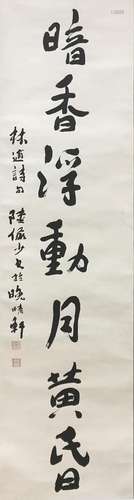 暗香浮動月黄昏
林逋詩句
陸儼少書於晚晴軒